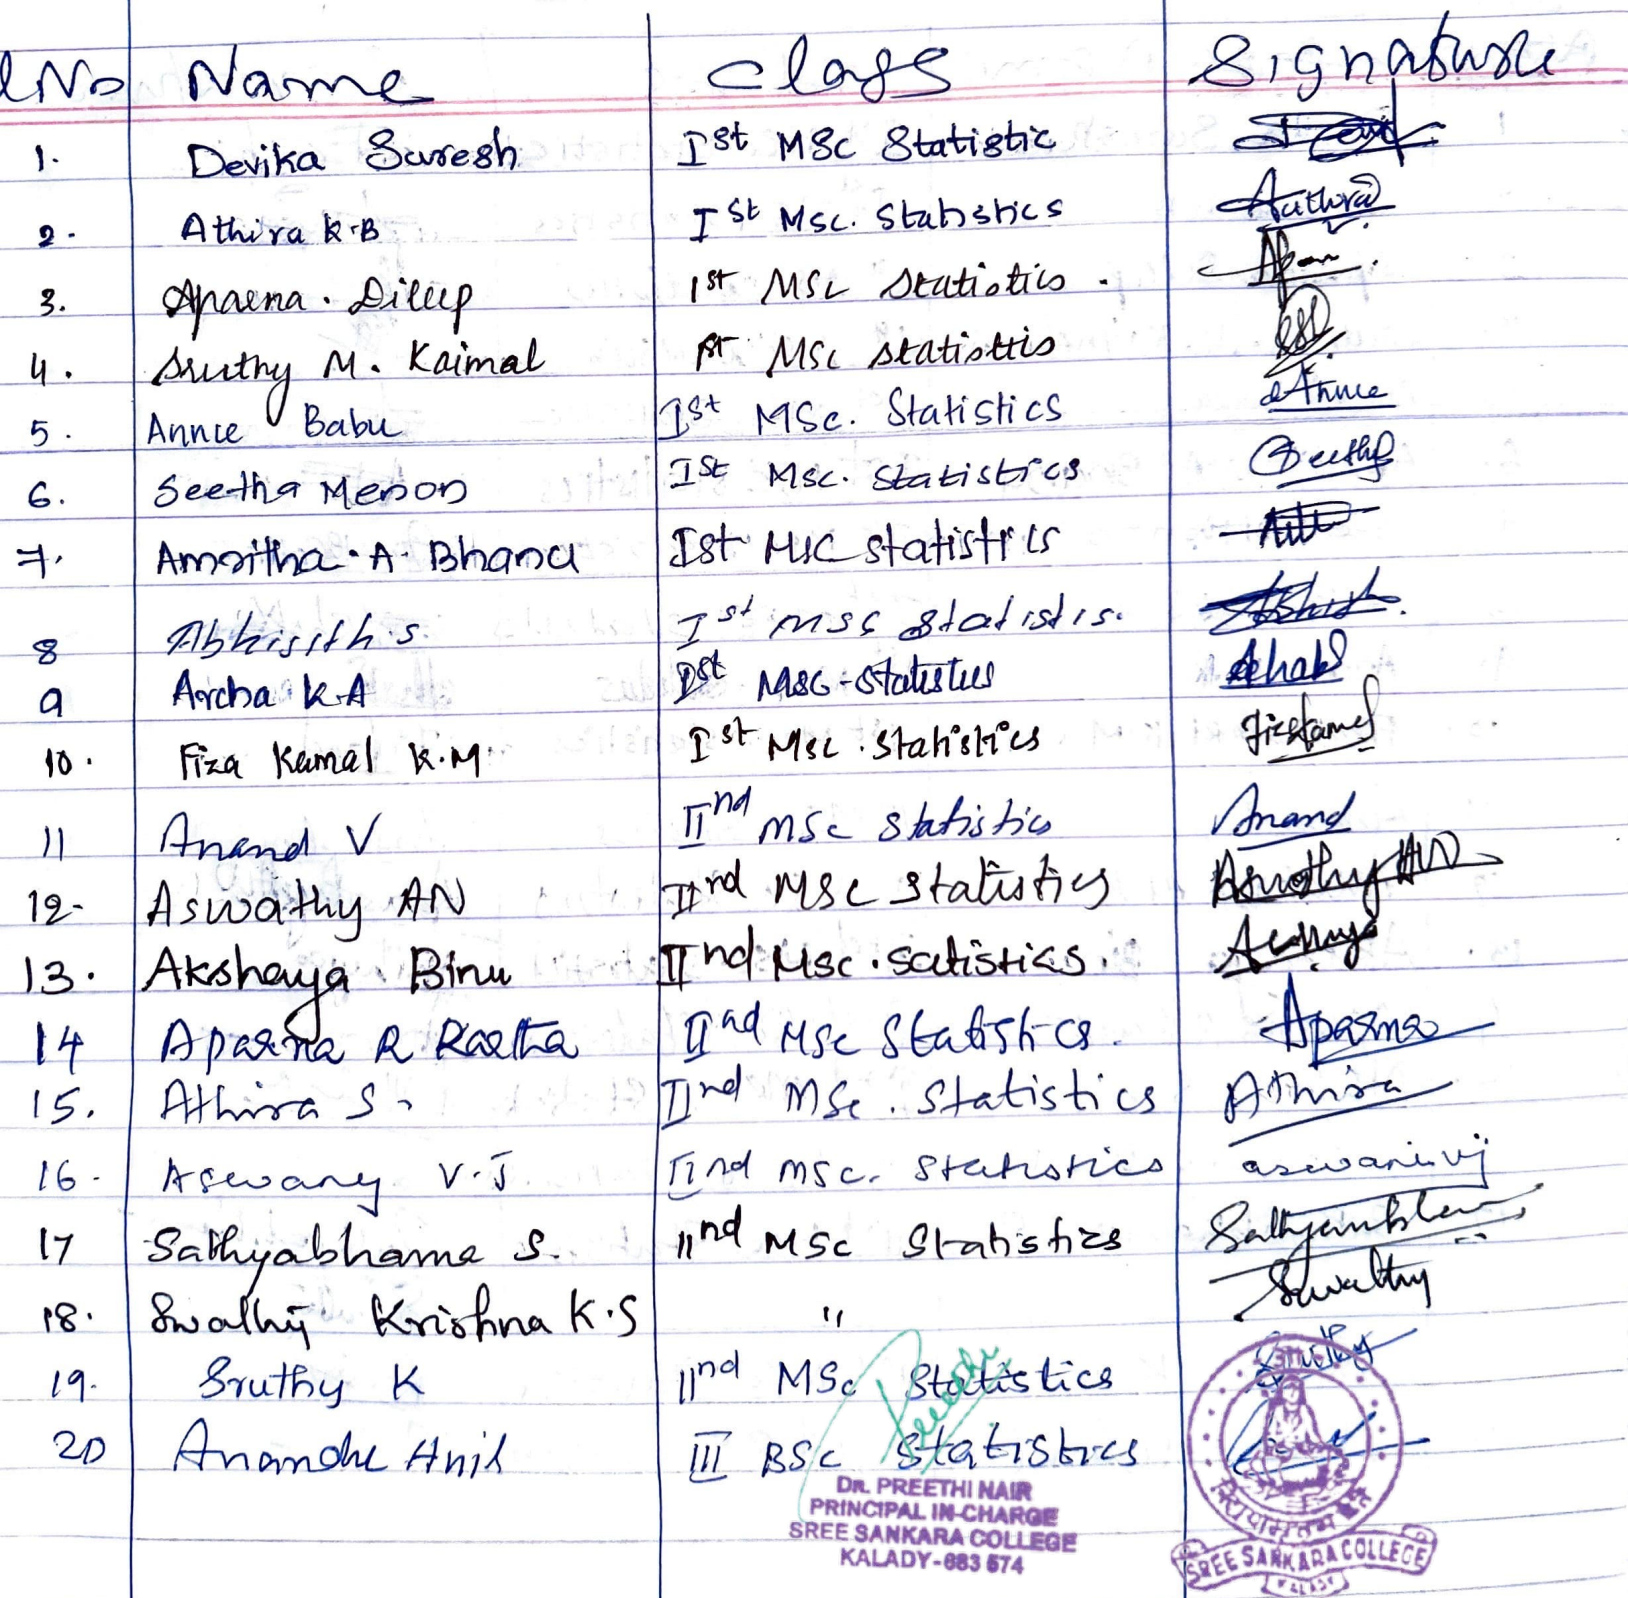 lNo Name Class Signature
1. Devika Suresh Ist MSc Statistic
2. Athira K.B Ist Msc. Statistics Aathira
3. Aparna. Dileep 1st MSc Statistics.
4. Sruthy M. Kaimal 1st MSc Statisttis
5. Annie Babu Ist MSc. Statistics Annie
6. Seetha Menon Ist Msc. Statistics
7. Amritha.A.Bhanu Ist MSC statistics
8 Abhijith.S. Ist MSC Statistis.
9 Archa K.A Ist MSC-Statistics
10. Fiza Kamal K.M. Ist Msc.Statistics
11 Anand V IInd MSc Statistics Anand
12- Aswathy AN IIrd MSC Statistics Aswathy AN
13. Akshaya Binu IInd Msc.satistics.
14 Aparna R Raetha IInd MSc Statistics. Aparna
15. Athira S. IInd MSc. Statistics Athira
16- Aswany V.J IInd MSc. Statistics aswanivj
17 Sathyabhama S. IInd MSc Statistics
18. Swathy Krishna K.S " Swathy
19. Sruthy K IInd MSc Statistics Sruthy
20 Anandhu Anil III BSc Statistics
DR. PREETHI NAIR
PRINCIPAL IN-CHARGE
SREE SANKARA COLLEGE
KALADY-683 574
SREE SANKARA COLLEGE
KALADY